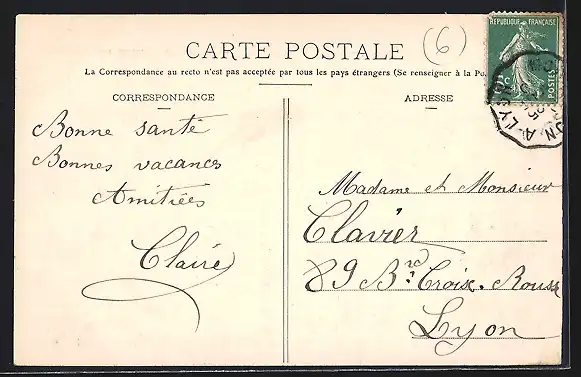 (6)
REPUBLIQUE FRANÇAISE
POSTES
CARTE POSTALE
La Correspondance au recto n'est pas acceptée par tous les pays étrangers (Se renseigner à la Po
CORRESPONDANCE
ADRESSE
Bonne santé
Bonnes vacances
Amitiées
Claire
Madame et Monsieur
Clavier
89 Bd Croix. Rousse
Lyon